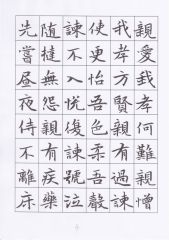 親愛我孝何難親憎
我孝方賢親有過諫
使更怡吾色柔吾聲
諫不入悅復諫號泣
隨撻無怨親有疾藥
先嘗晝夜侍不離床